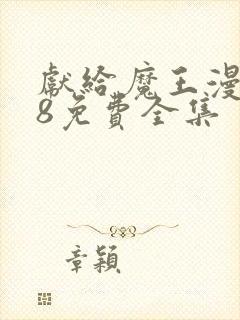 獻給魔王漫
8免費全集
章穎